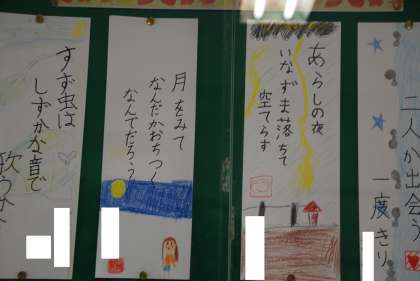 二人が出会う
一度きり
あらしの夜
いなずま落ちて
空てらす
月をみて
なんだかおちつく
なんでだろう?
すず虫は
しずかな音で
歌うかな